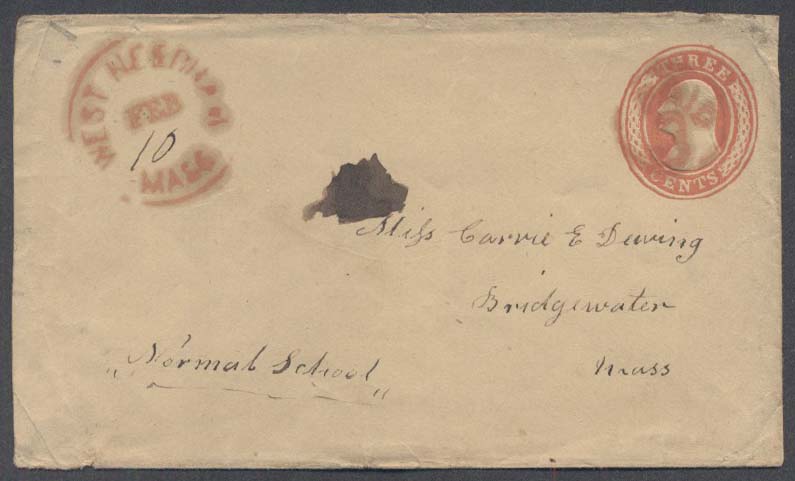 WEST NEEDHAM
FEB
10
MASS
THREE
CENTS
Miss Carrie E Dewing
Bridgewater
Mass
"Normal School"